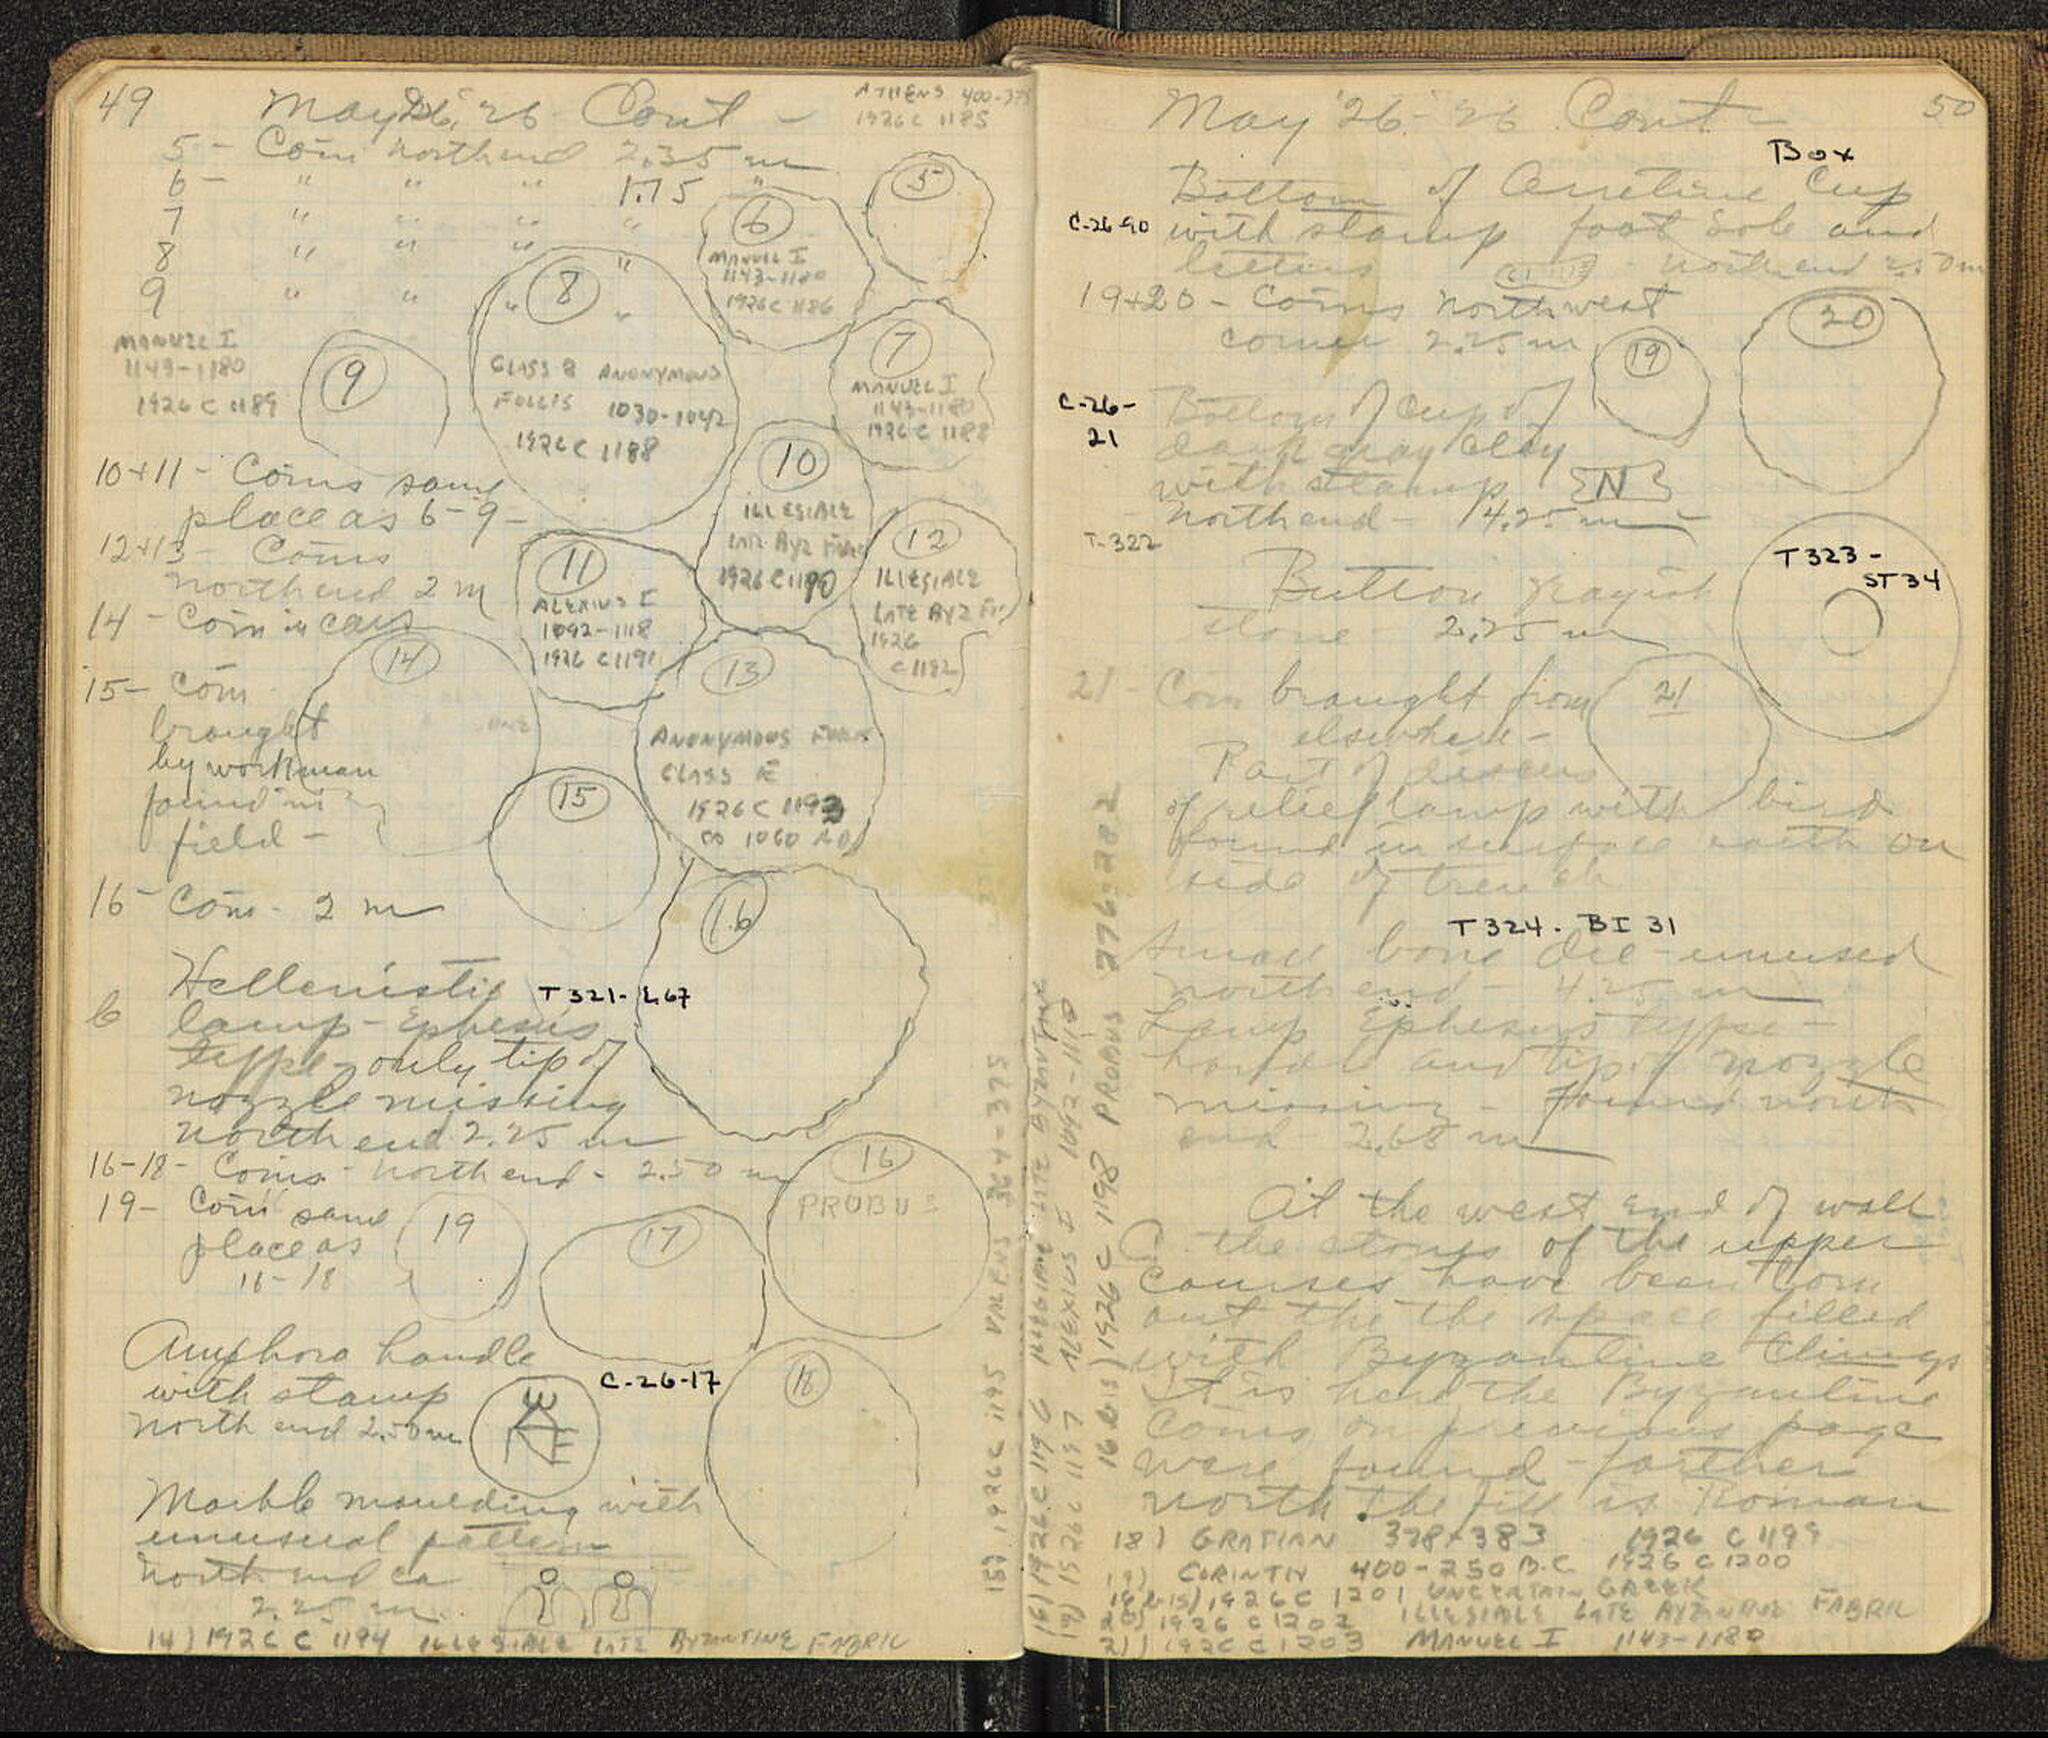 49 May 26, '26 Cont -
ATHENS 400-375
1926 C 1185
5 - Coin north end 2.35 m
6 - " " " 1.75 "
7 " " " "
8 " " " "
9 " " " "
5
6
MANUEL I
1143-1180
1926 C 1186
7
MANUEL I
1143-1180
1926 C 1188
8
CLASS B ANONYMOUS
FOLLIS 1030-1042
1926 C 1188
MANUEL I
1143-1180
1926 C 1189
9
10+11 - Coins same
place as 6-9 -
10
ILLEGIBLE
LATE BYZ FABRIC
1926 C 1190
12+13 - Coins
north end 2 m
11
ALEXIUS I
1092-1118
1926 C 1191
12
ILLEGIBLE
LATE BYZ
1926
C 1192
14 - Coin in cars
14
13
ANONYMOUS
CLASS E
1926 C 1193
1060 AD
15 - Coin
brought
by workman
found in
field -
15
16 - Coin - 2 m
16
Hellenistic T 321 - L 67
6 lamp - Ephesus
type - only tip of
nozzle missing
north end 2.25 m
16-18 - Coins - north end - 2.50 m
16
PROBUS
19 - Coin same
place as
16-18
19
17
18
Amphora handle
with stamp C-26-17
north end 2.50 m
Marble moulding with
unusual pattern
north end ca
2.25 m.
14) 1926 C 1194 ILLEGIBLE LATE BYZANTINE FABRIC
15) 1926 C 1195 VALENS 364-375
16) 1926 C 1196 ILLEGIBLE LATE BYZANTINE
19) 1926 C 1197 ALEXIUS I 1092-1118
16 bis) 1926 C 1198 PROBUS 276-282
May 26 - 26 Cont - 50
Box
Bottom of Arretine Cup
C-26-90 with stamp foot sole and
letters north end
19+20 - Coins northwest
corner 2.25 m
19
20
C-26-
21
Bottom of cup of
dark gray clay
with stamp N
North end - 4.25 m
T-322
T323 -
ST 34
Button grayish
stone 2.25 m
21 - Coin brought from
elsewhere -
21
Part of discus
of relief lamp with bird
found in surface earth on
side of trench
T 324 - BI 31
Small bone die - unused
north end - 4.25 m
Lamp Ephesus type -
handle and tip of nozzle
missing - Found north
end - 2.68 m
At the west end of wall
the stones of the upper
courses have been torn
out the the space filled
with Byzantine things
It is here the Byzantine
coins on previous page
were found - farther
north the fill is Roman
18) GRATIAN 378-383 1926 C 1199
19) CORINTH 400-250 B.C. 1926 C 1200
19 bis) 1926 C 1201 UNCERTAIN GREEK
20) 1926 C 1202 ILLEGIBLE LATE BYZANTINE FABRIC
21) 1926 C 1203 MANUEL I 1143-1180